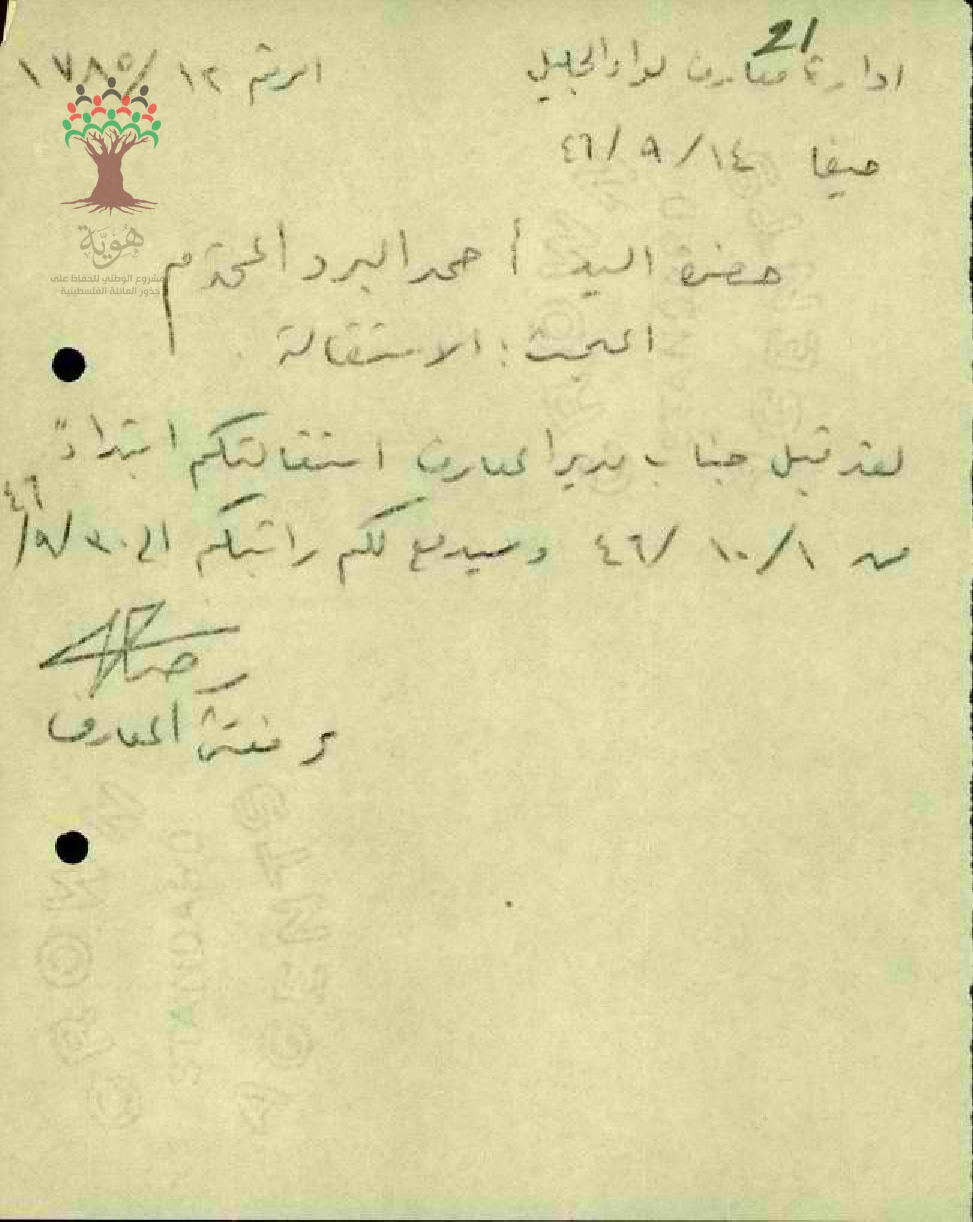 21
ادارة معارف لواء الجليل الرقم ١٢/١٧٨٥
حيفا ١٤/٩/٤٦
هُويّة
مشروع الوطني للحفاظ على
جذور العائلة الفلسطينية
حضرة السيد أحمد البرد المحترم
المبحث : الاستقالة
لقد قبل جناب مدير المعارف استقالتكم ابتداءً
من ١/١٠/٤٦ وسيدفع لكم راتبكم الى ٣٠/٩/٤٦
مفتش المعارف